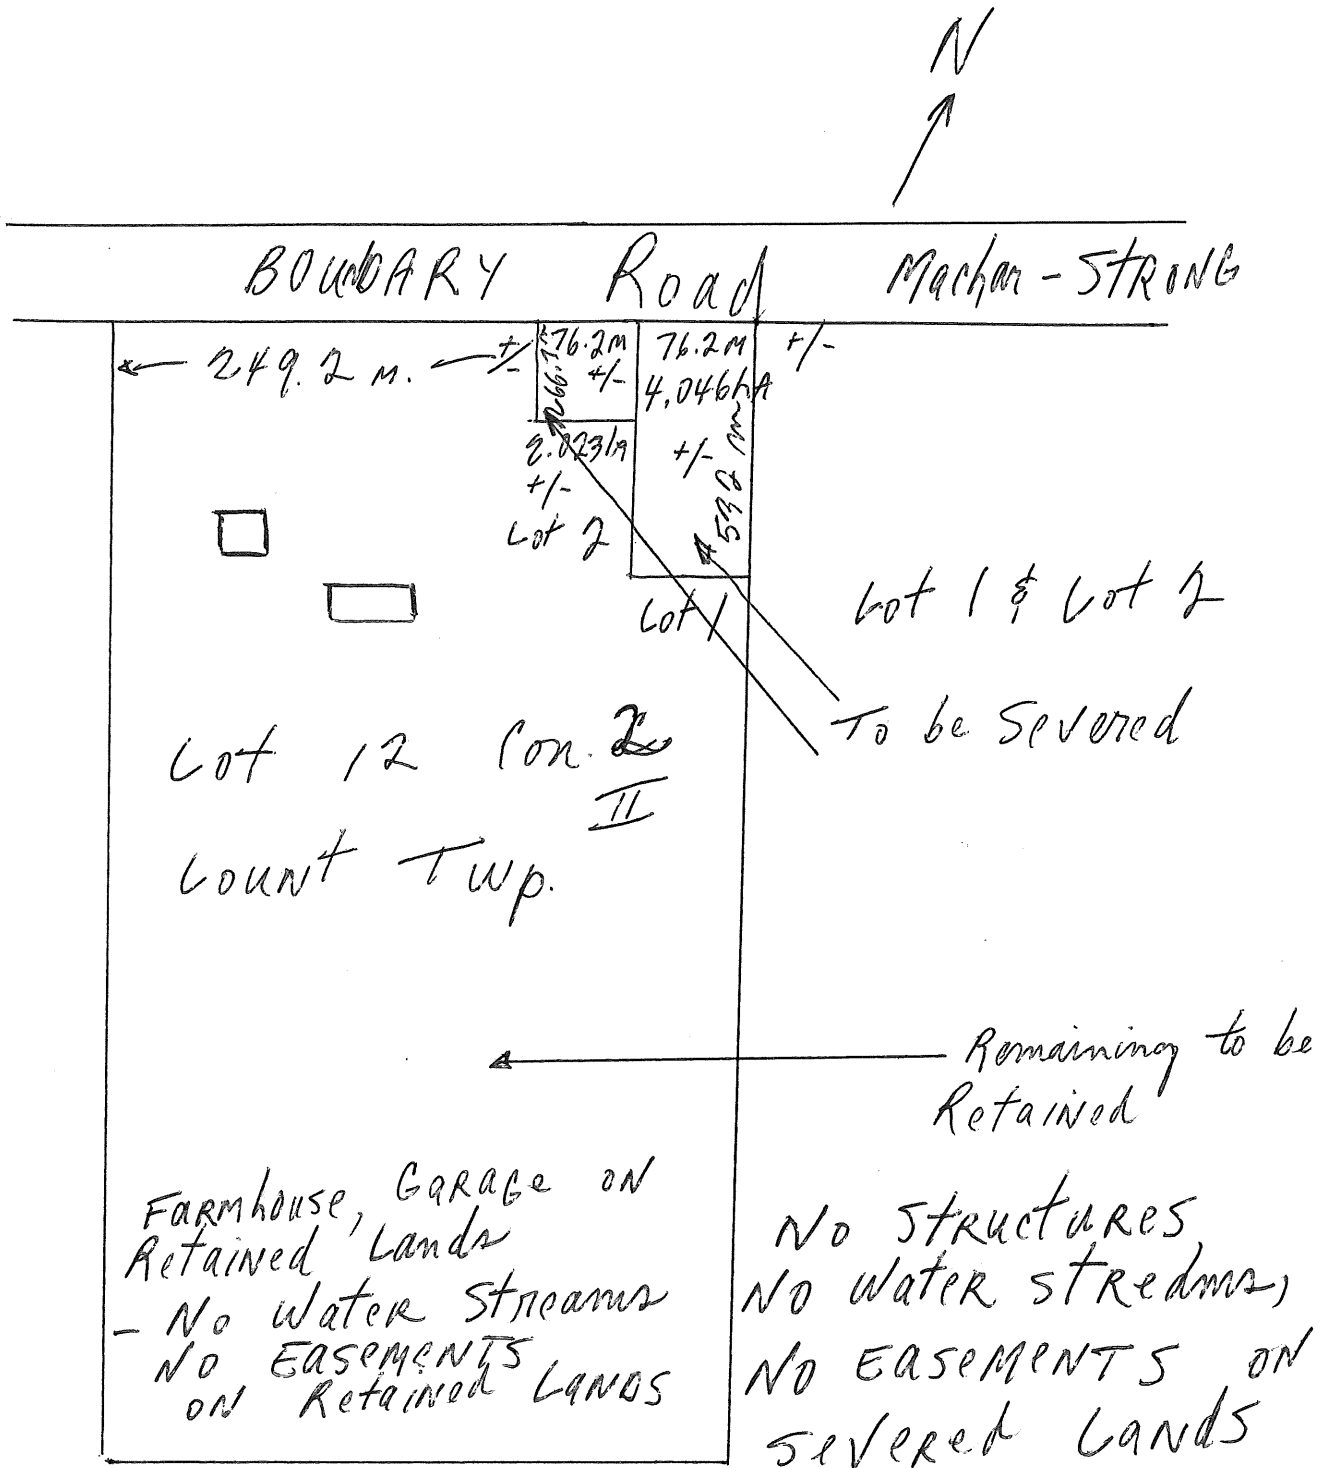 N
BOUNDARY Road Machar - STRONG
249.2 m. +/-
76.2m +/-
76.2m +/-
4.046hA
+/-
532 m
2.023hA
+/-
Lot 2
Lot 1
Lot 1 & Lot 2
To be Severed
Lot 12 Con. 2
II
Lount Twp.
Remaining to be
Retained
Farmhouse, Garage on
Retained Lands
- No Water Streams
No EASEMENTS
on Retained Lands
No Structures,
No Water Streams,
No EASEMENTS on
Severed Lands